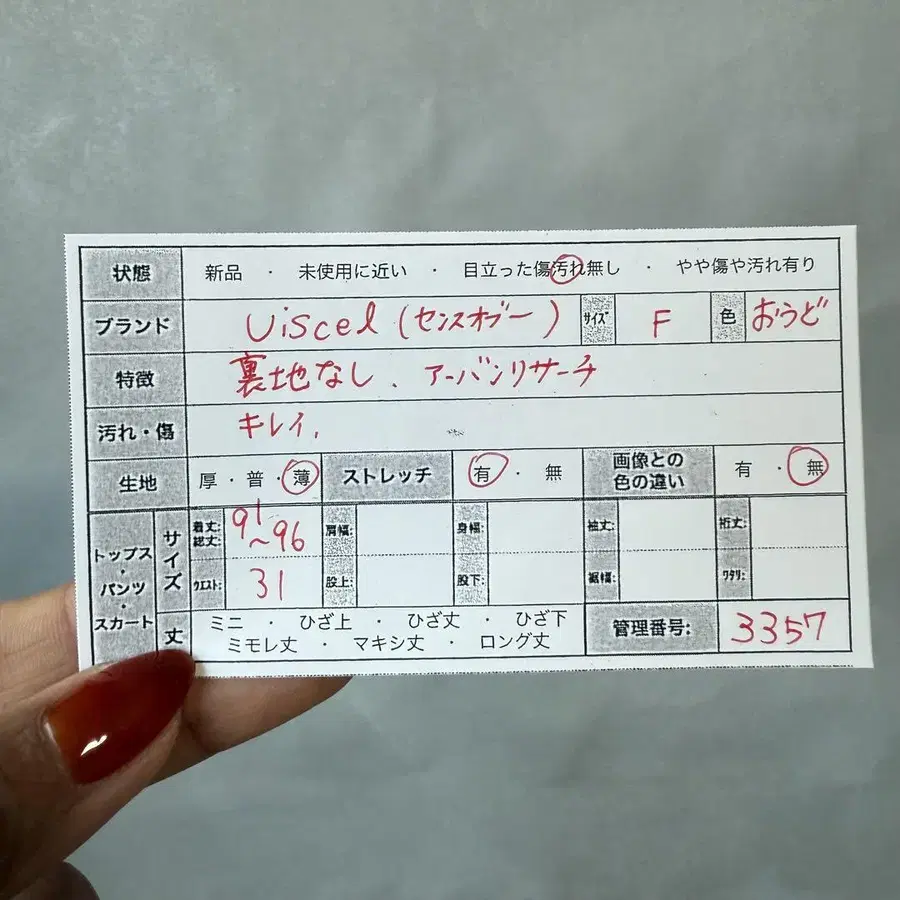 状態 新品 ・ 未使用に近い ・ 目立った傷汚れ無し ・ やや傷や汚れ有り
ブランド Uiscel (センスオブー) サイズ F 色 おうど
特徴 裏地なし、アーバンリサーチ
汚れ・傷 キレイ.
生地 厚・普・薄 ストレッチ 有・無 画像との色の違い 有・無
トップス・パンツ・スカート サイズ 着丈:総丈: 91~96 肩幅: 身幅: 袖丈: 裄丈:
ウエスト: 31 股上: 股下: 裾幅: ワタリ:
丈 ミニ ・ ひざ上 ・ ひざ丈 ・ ひざ下
ミモレ丈 ・ マキシ丈 ・ ロング丈
管理番号: 3357